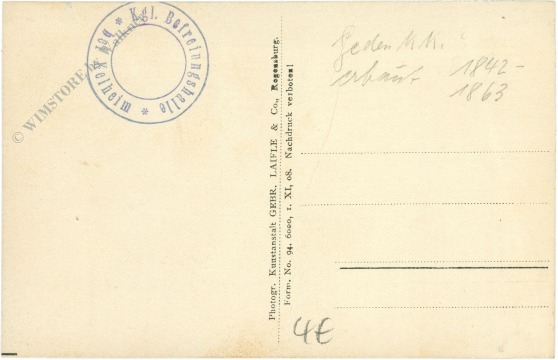 Kgl. Befreiungshalle * bei Kelheim *
© WIMSTORE
Photogr. Kunstanstalt GEBR. LAIFLE & Co., Regensburg.
Form. No. 94. 6000, 1. XI, 08. Nachdruck verboten!
erbaut 1842-
1863
4€